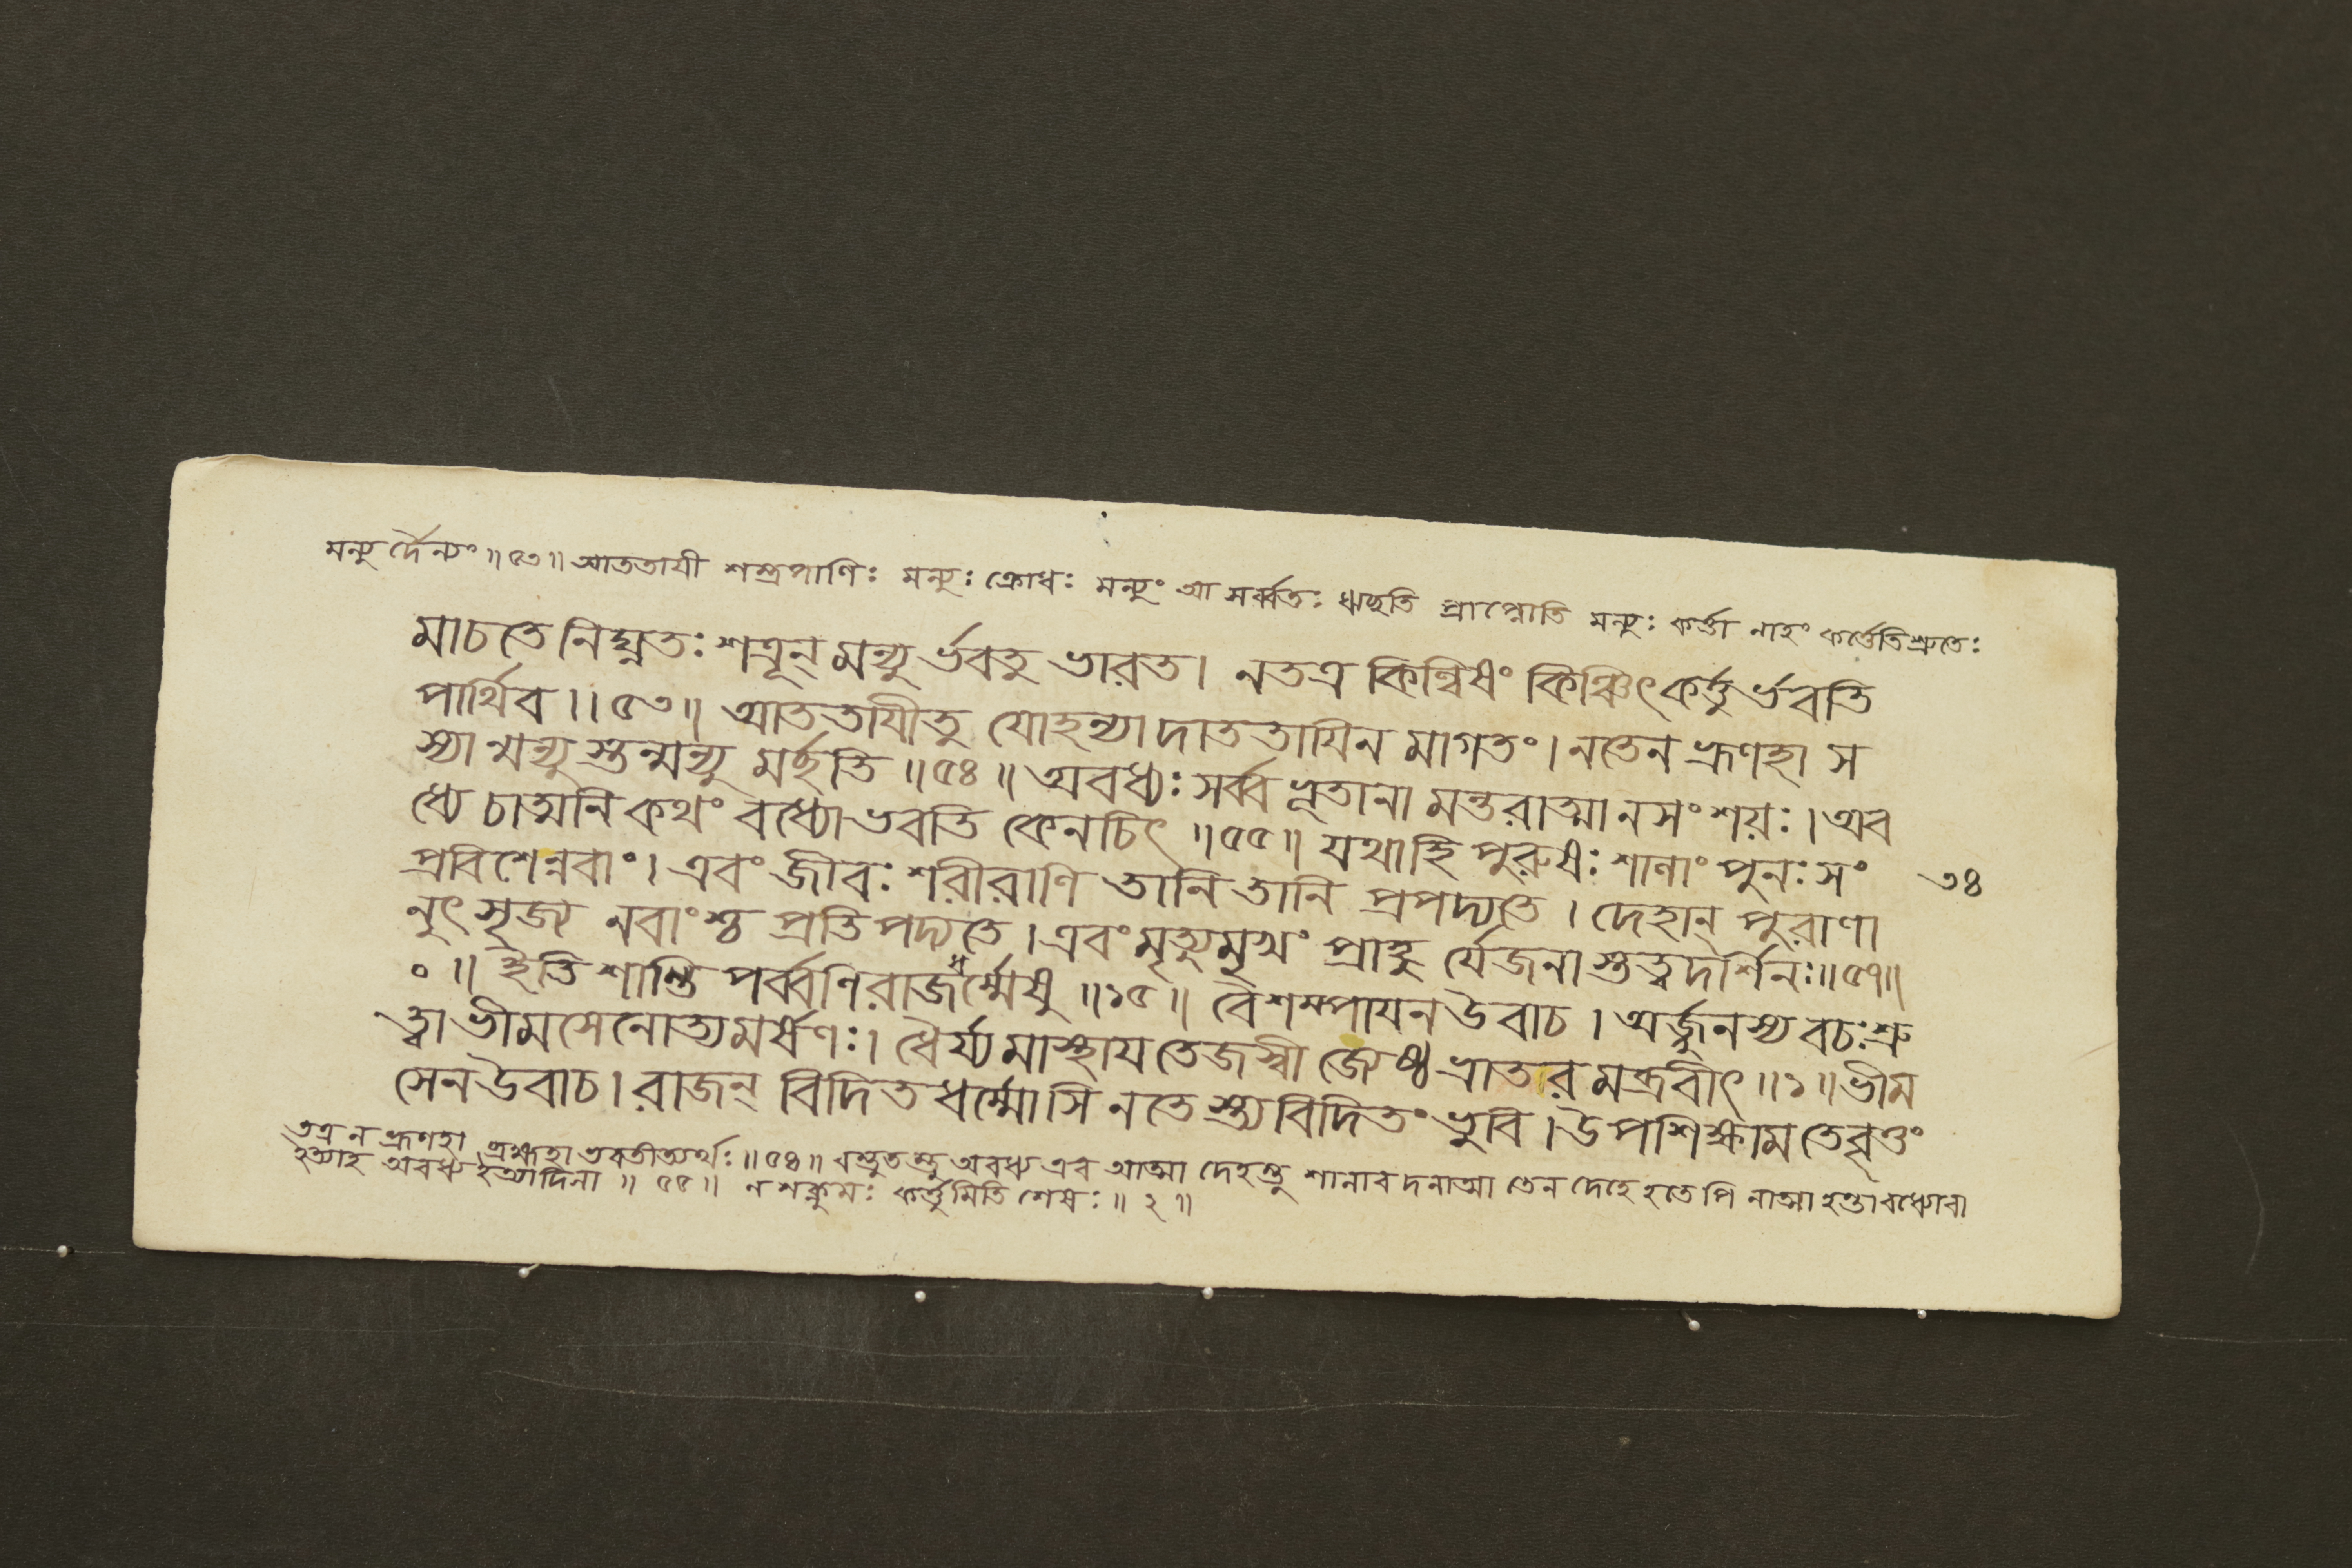 মন্যু র্দৈন্যং ॥ ৫৩ ॥ আততাযী শস্ত্রপাণিঃ মন্যুঃ ক্রোধঃ মন্যুং আ সর্ব্বতঃ ঋচ্ছতি প্রাপ্নোতি মন্যুঃ কর্ত্তা নাহং কর্ত্তেতিশ্রুতেঃ
মাচতে নিঘ্নতঃ শত্রূন্ মন্যু র্ভবতু ভারত। নতত্র কিল্বিষং কিঞ্চিৎকর্ত্তু র্ভবতি
পার্থিব ।। ৫৩॥ আততাযীতু যোহন্যা দাততাযিন মাগতং। নতেন ভ্রূণহা স
স্যা ন্মন্যু স্তন্মন্যু মর্চ্ছতি ॥ ৫৪ ॥ অবধ্যঃ সর্ব্ব ভূতানা মন্তরাত্মা নসং শয়ঃ। অব
ধ্যে চাত্মনি কথং বধ্যোভবতি কেনচিৎ ॥ ৫৫ ॥ যথাহি পুরুষঃ শালাং পুনঃ সং
৩৪
প্রবিশেন্নবাং। এবং জীবঃ শরীরাণি তানি তানি প্রপদ্যতে। দেহান্ পুরাণা
নুৎ সৃজ্য নবাংশ্চ প্রতি পদ্যতে। এবং মৃত্যুমুখং প্রাহু র্যেজনা স্তত্ত্ব দর্শিনঃ॥৫৭॥
০ ॥ ইতি শান্তি পর্ব্বণি রাজধর্ম্মেষু ॥ ১৫ ॥ বৈশম্পাযন উবাচ। অর্জ্জুনস্য বচঃ শ্রু
ত্বা ভীমসেনোত্যমর্ষণঃ। ধৈর্য্য মাস্থায তেজস্বী জ্যেষ্ঠ ভ্রাতার মব্রবীৎ ॥১॥ ভীম
সেন উবাচ। রাজন্ বিদিত ধর্ম্মোসি নতে স্ত্য বিদিতং ভুবি। উপশিক্ষাম তেবৃত্তং
তত্র ন ভ্রূণহা ব্রহ্মহা ভবতীত্যর্থঃ ॥ ৫৪ ॥ বস্তুত স্তু অবধ্য এব আত্মা দেহস্তু শালাব দনাত্মা তেন দেহে হতে পি নাত্মা হন্তাবধ্যোবা
ইত্যাহ অবধ্য ইত্যাদিনা ॥ ৫৫ ॥ ন শক্নুমঃ কর্ত্তুমিতি শেষঃ ॥ ২ ॥